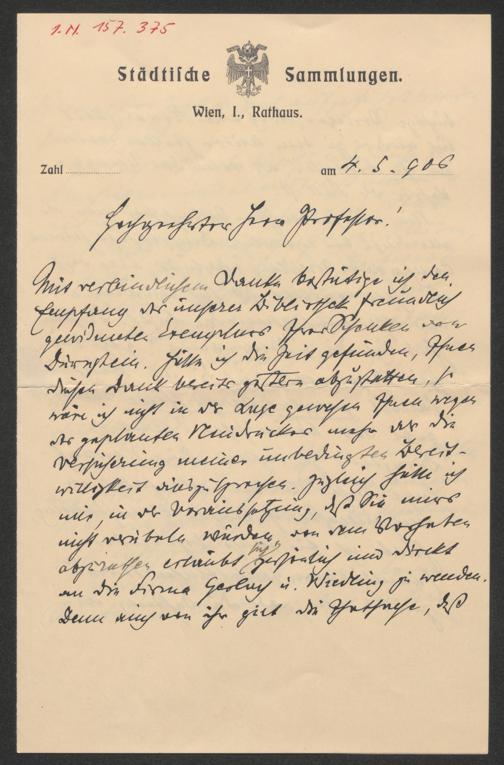 I.N. 157.375
Städtische Sammlungen.
Wien, I., Rathaus.
Zahl
am 4. 5. 906
Hochgeehrter Herr Professor!
Mit verbindlichem Danke bestätige ich den
Empfang des unserer Bibliothek freundlich
gewidmeten Exemplars Ihres Schenken von
Dürnstein. Hätte ich die Zeit gefunden, Ihnen
diesen Dank bereits gestern abzustatten, so
wäre ich nicht in der Lage gewesen Ihnen wegen
des geplanten Neudruckes mehr als die
Versicherung meiner unbedingten Bereit-
willigkeit auszusprechen. Zugleich hätte ich
mir, in der Voraussetzung, daß Sie mirs
nicht verübeln würden, von dem Vorhaben
abzurathen erlaubt persönlich und direkt
an die Firma Gerlach u. Wiedling zu wenden.
Denn auch von ihr gilt die Thatsache, daß